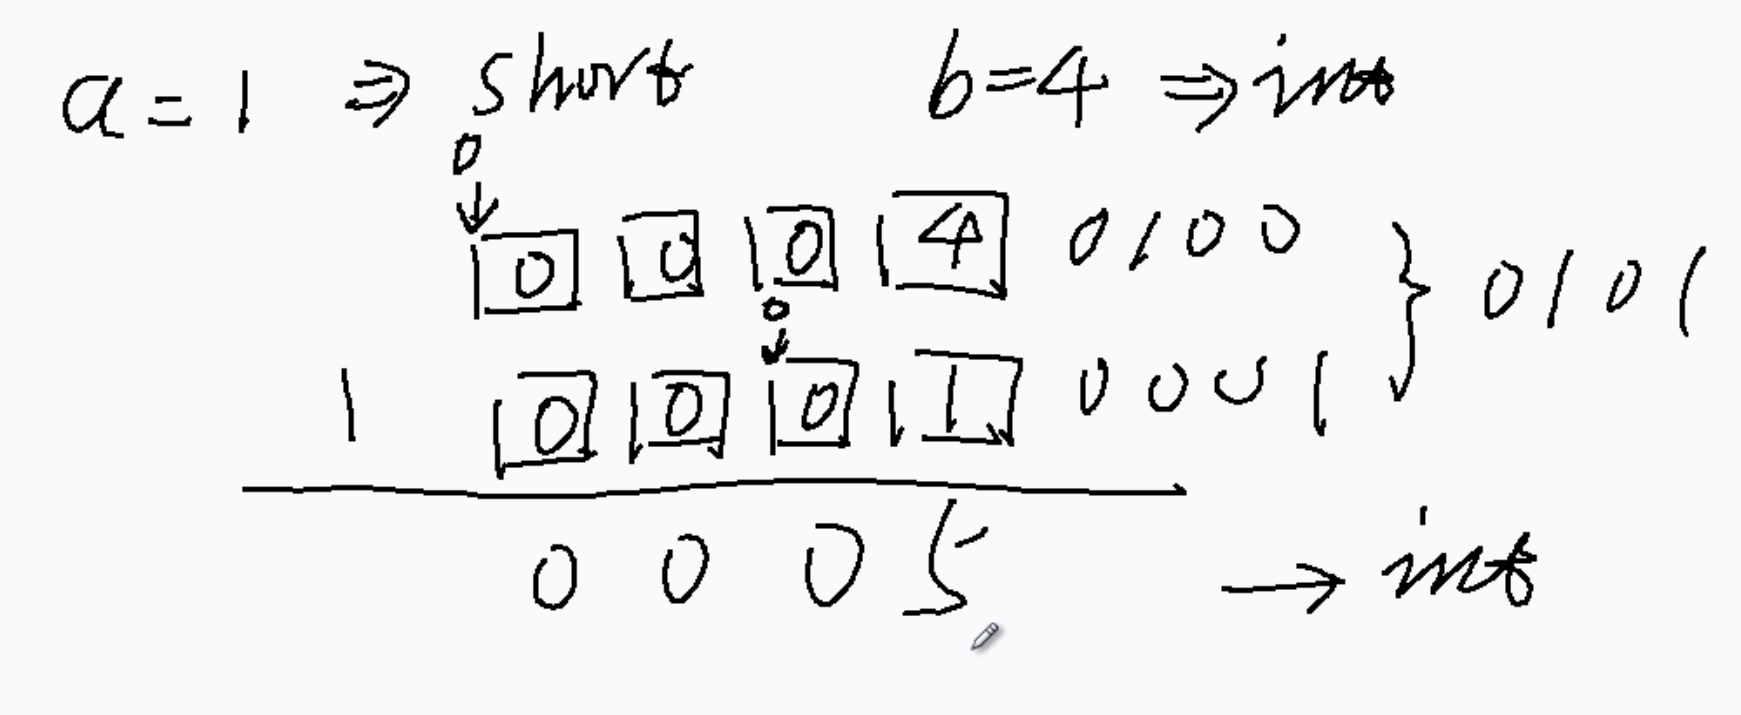 a = 1 ⇒ short b=4 ⇒ int
0
↓
0 0 0 4 0100 } 0101
0
↓
1 0 0 0 1 0001
0 0 0 5 → int